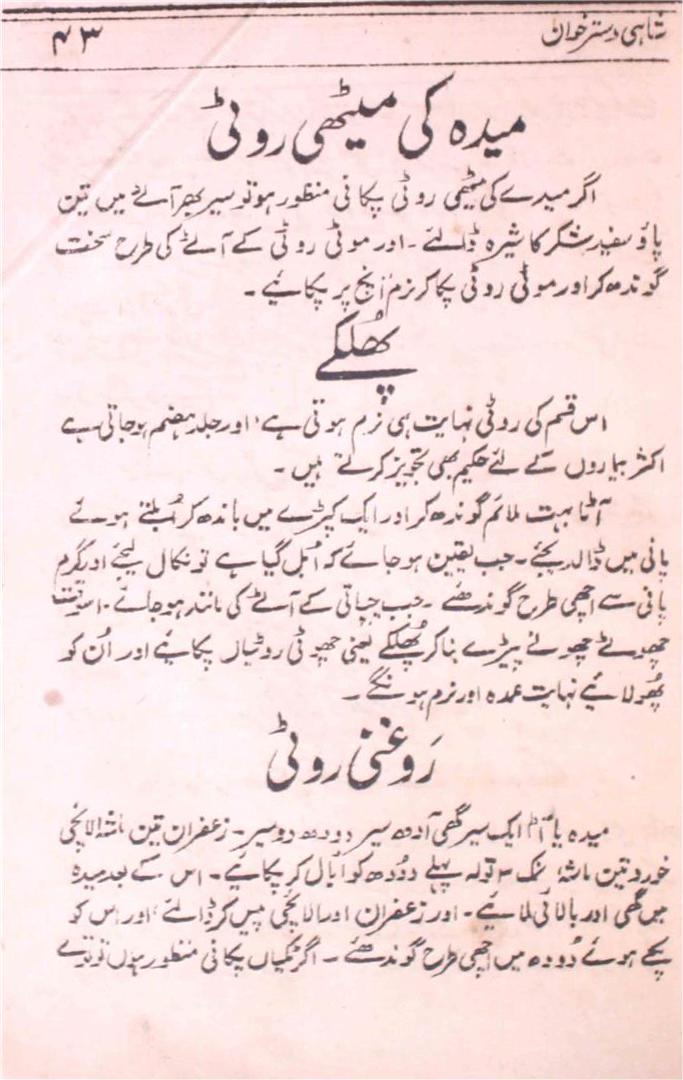 شاہی دسترخوان ۴۳
میدہ کی میٹھی روٹی
اگر میدے کی میٹھی روٹی پکانی منظور ہو تو سیر بھر آٹے میں تین
پاؤ سفید شکر کا شیرہ ڈالئے۔ اور موٹی روٹی کے آٹے کی طرح سخت
گوندھ کر اور موٹی روٹی پکا کر نرم آنچ پر پکائیے۔
پُھلکے
اس قسم کی روٹی نہایت ہی نرم ہوتی ہے، اور جلد ہضم ہو جاتی ہے
اکثر بیماروں کے لئے حکیم بھی تجویز کرتے ہیں۔
آٹا بہت ملائم گوندھ کر اور ایک کپڑے میں باندھ کر اُبلتے ہوئے
پانی میں ڈال دیجئے۔ جب یقین ہو جائے کہ اُبل گیا ہے تو نکال لیجئے اور گرم
پانی سے اچھی طرح گوندھئے۔ جب چپاتی کے آٹے کی مانند ہو جائے۔ اسوقت
چھوٹے چھوٹے پیڑے بنا کر پُھلکے یعنی چھوٹی روٹیاں پکائیے اور اُن کو
پُھولائیے نہایت عمدہ اور نرم ہونگے۔
رَوغنی روٹی
میدہ یا آٹا ایک سیر گھی آدھ سیر دودھ دو سیر۔ زعفران تین ماشہ الائچی
خورد تین ماشہ نمک ۲ تولہ پہلے دُودھ کو اُبال کر پکائیے۔ اس کے بعد میدہ
میں گھی اور بالائی ملائیے۔ اور زعفران اور الائچی پیس کر ڈالئے، اور اس کو
پکے ہوئے دُودھ میں اچھی طرح گوندھئے۔ اگر ٹکیاں پکانی منظور ہوں تو توے